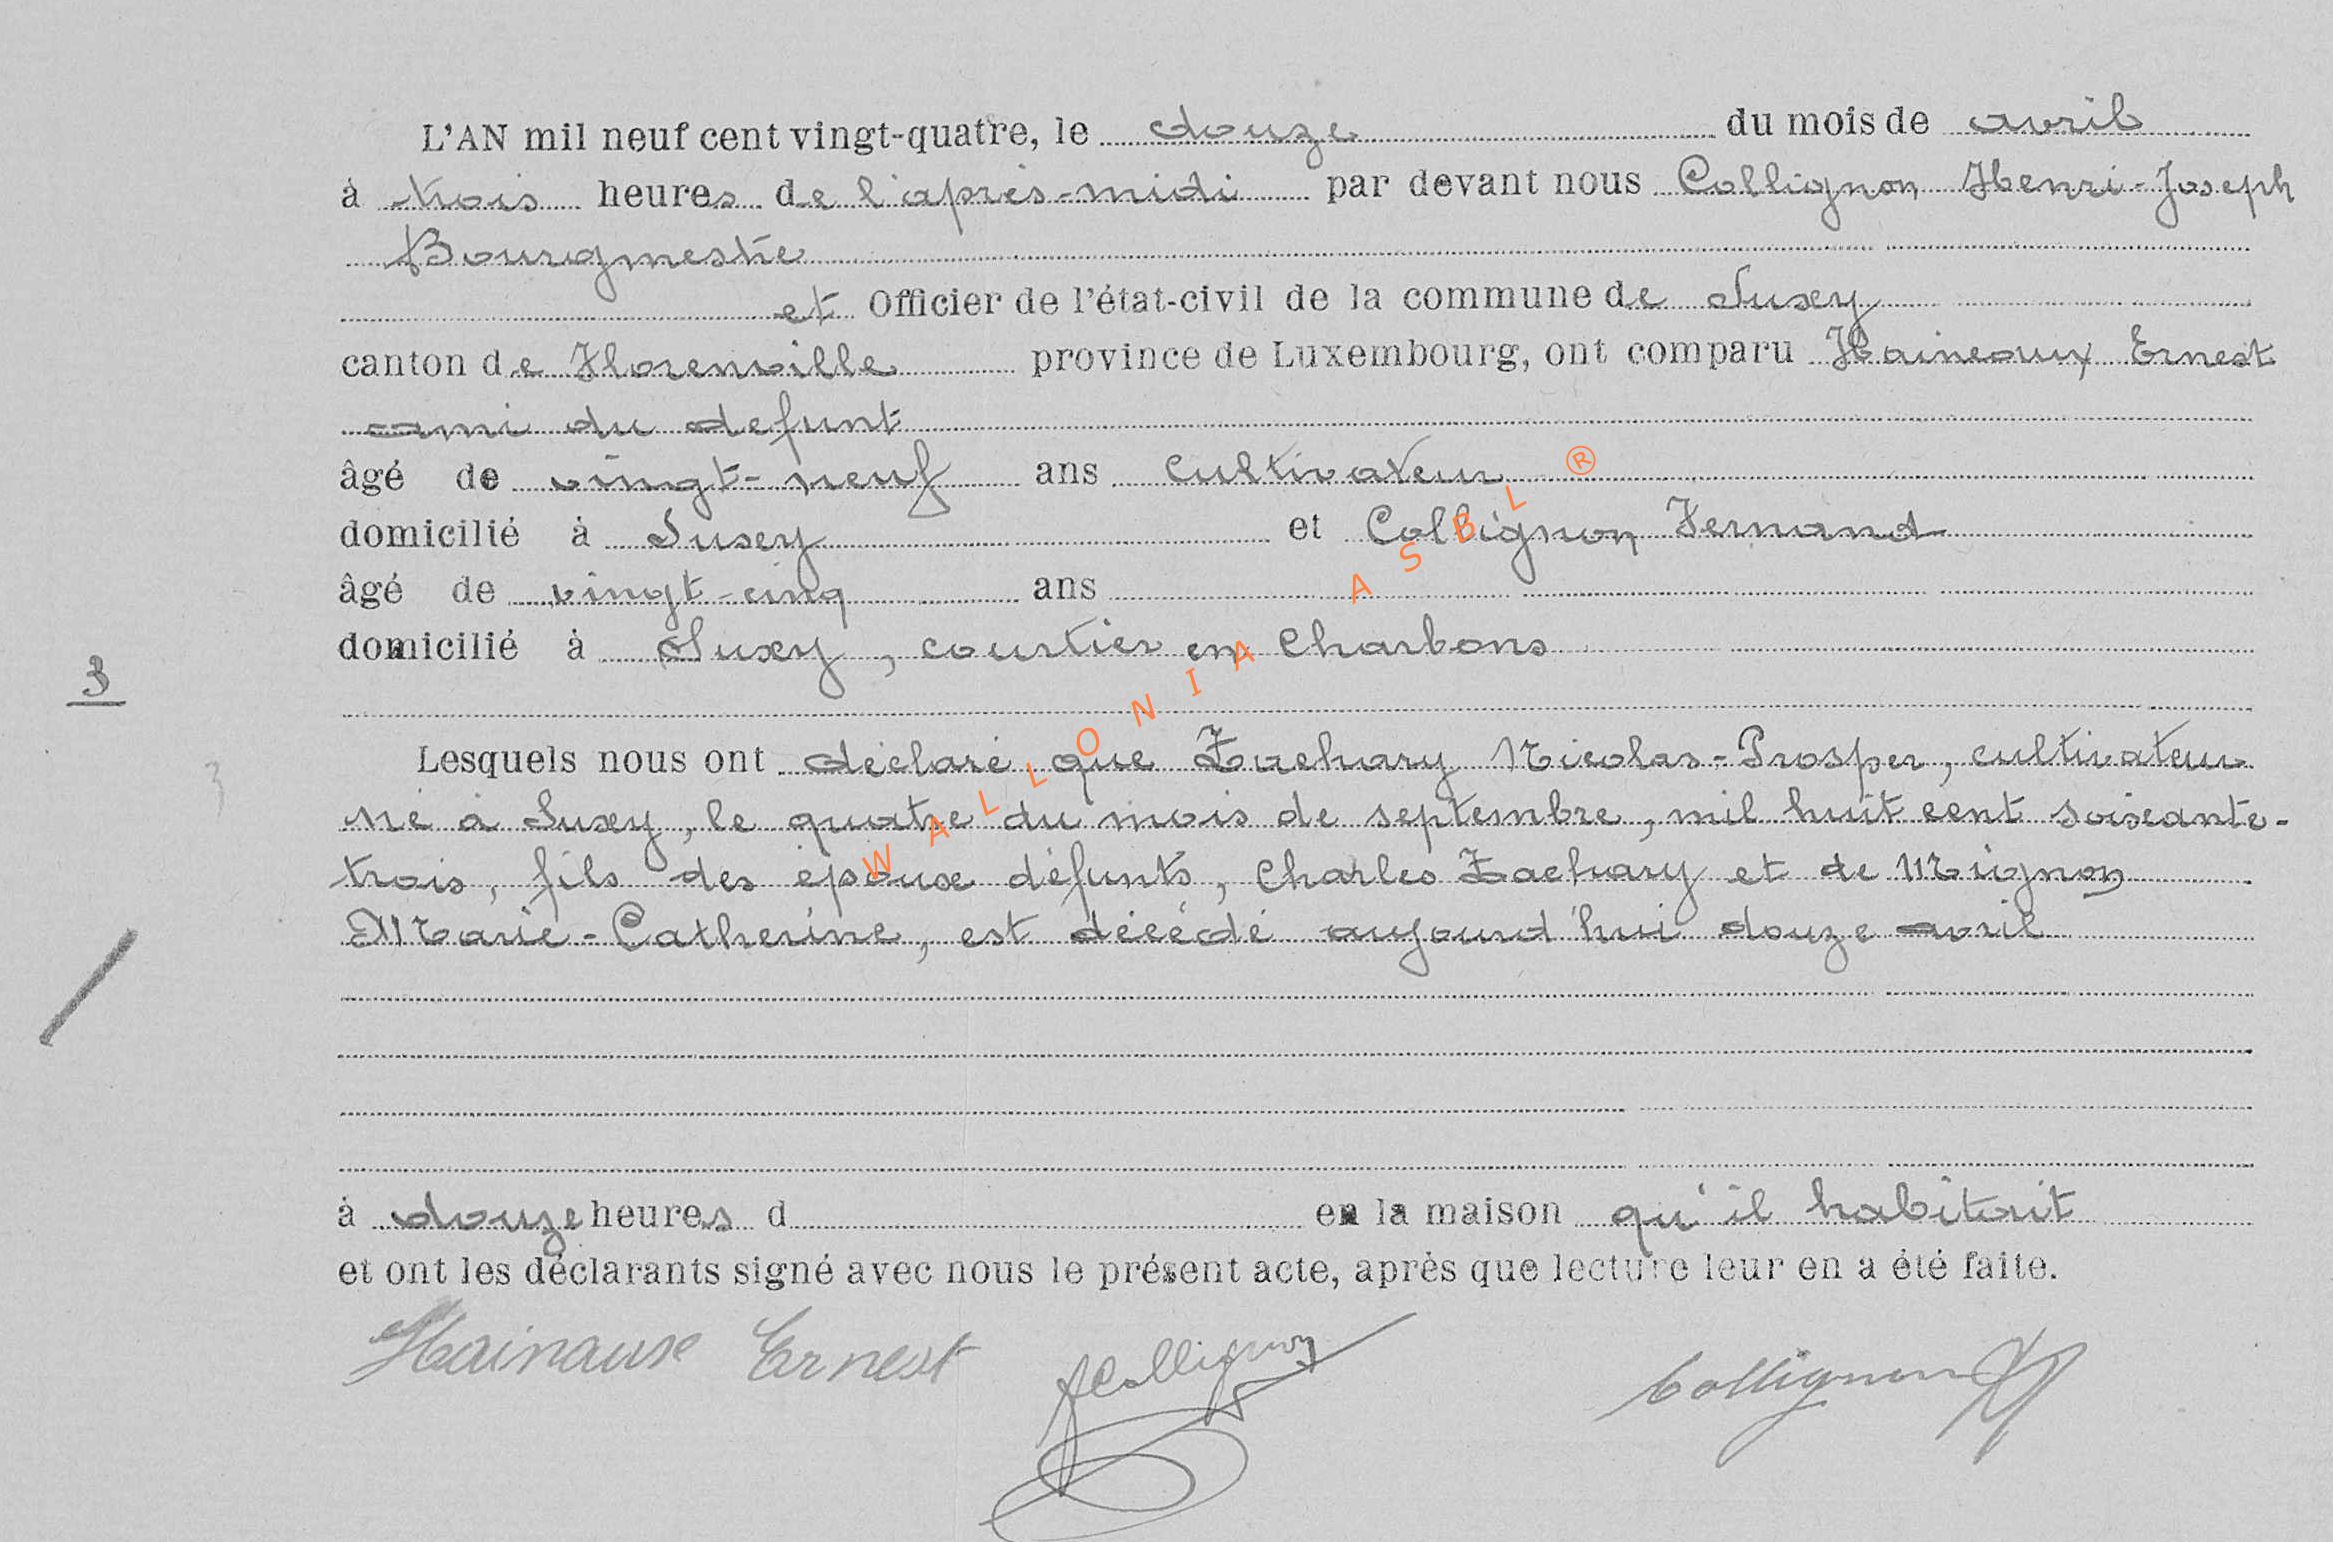 L'AN mil neuf cent vingt-quatre, le douze du mois de avril
à trois heures de l'après-midi par devant nous Collignon Henri-Joseph
Bourgmestre
et Officier de l'état-civil de la commune de Suxy
canton de Florenville province de Luxembourg, ont comparu Haineaux Ernest
ami du defunt
âgé de vingt-neuf ans cultivateur
domicilié à Suxy et Collignon Fernand
âgé de vingt-cinq ans
domicilié à Suxy, courtier en charbons
3
3
Lesquels nous ont déclaré que Zachary Nicolas-Prosper, cultivateur
né à Suxy, le quatre du mois de septembre, mil huit cent soixante-
trois, fils des époux défunts, Charles Zachary et de Mignon
Marie-Catherine, est décédé aujourd'hui douze avril
à douze heures d en la maison qu'il habitait
et ont les déclarants signé avec nous le présent acte, après que lecture leur en a été faite.
Hainaux Ernest FCollignon Collignon HJ
WALLONIA ASBL ®